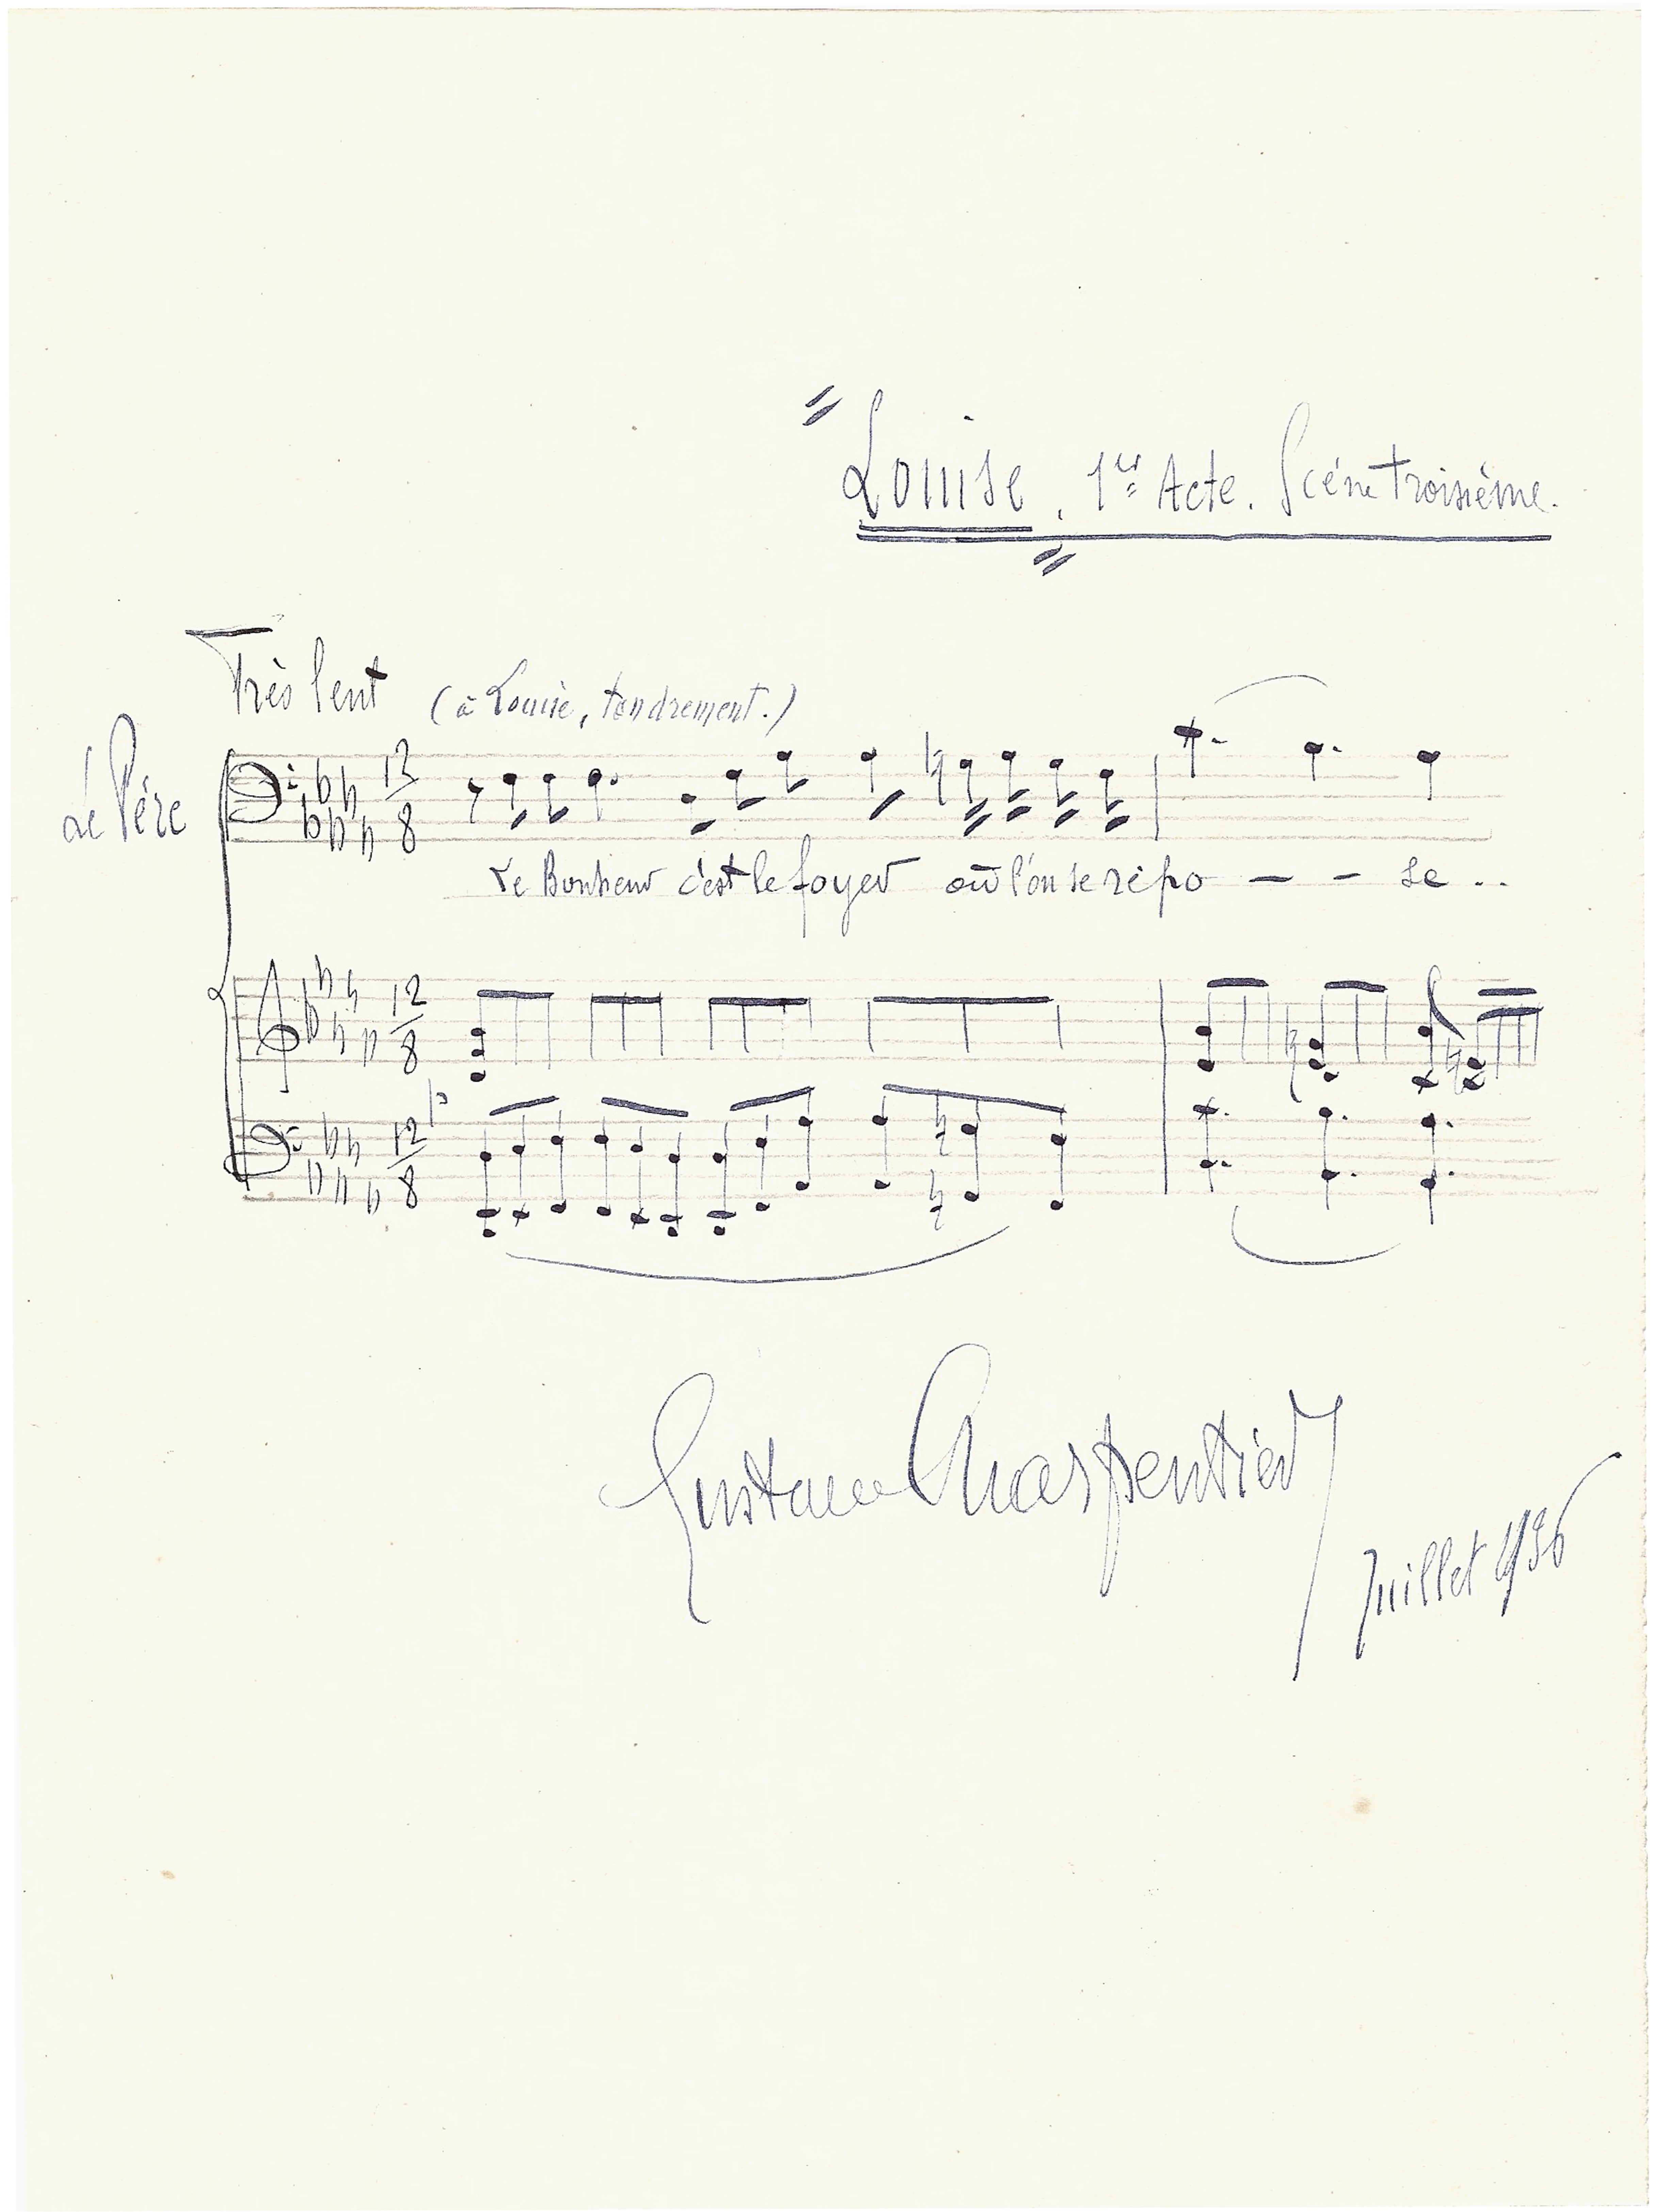 Louise, 1er Acte. Scène troisième.
Très lent (à Louise, tendrement.)
Le Père
12/8
Le Bonheur c'est le foyer où l'on se repo - - - se ..
12/8
p
12/8
Gustave Charpentier
Juillet 1936